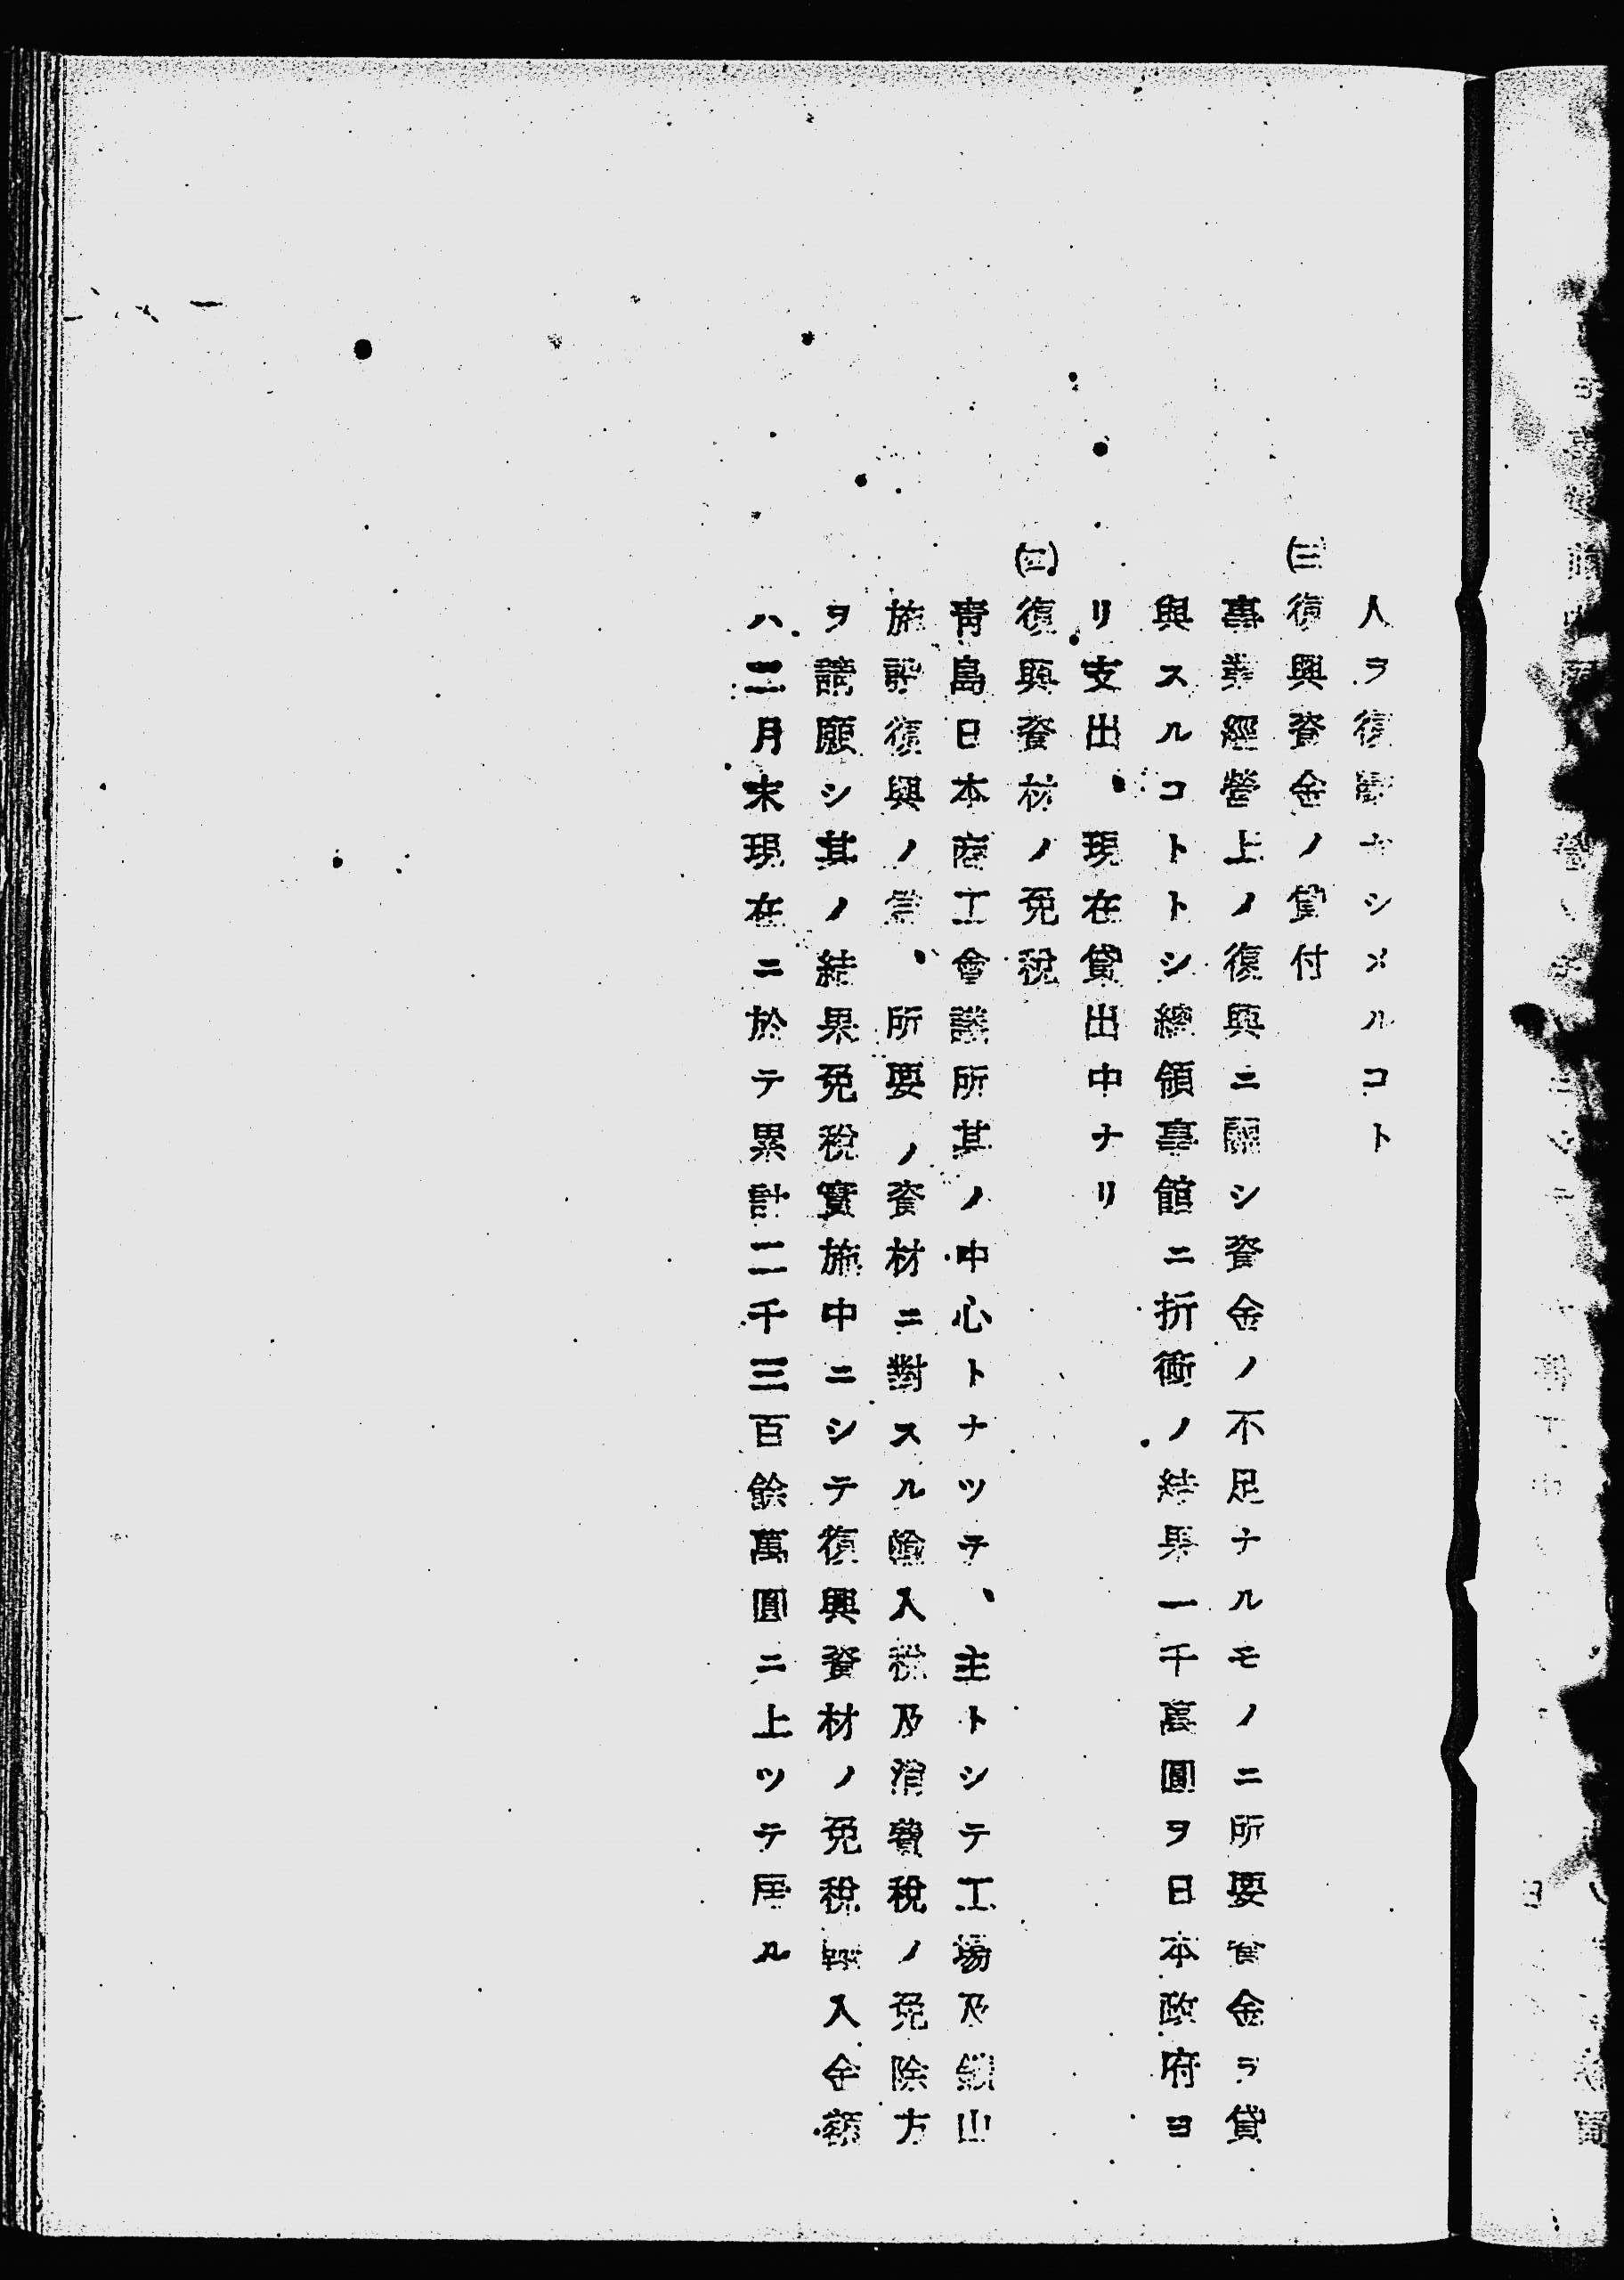 人ヲ復歸セシメルコト
㈢復興資金ノ貸付
事業經營上ノ復興ニ關シ資金ノ不足ナルモノニ所要資金ヲ貸
與スルコトトシ總領事館ニ折衝ノ結果一千萬圓ヲ日本政府ヨ
リ支出、現在貸出中ナリ
復興資材ノ免稅
靑島日本商工會議所其ノ中心トナツテ、主トシテ工場及鑛山
施設復興ノ爲、所要ノ資材ニ對スル輸入稅及消費稅ノ免除方
ヲ請願シ其ノ結果免稅實施中ニシテ復興資材ノ免稅輸入金額
ハ三月末現在ニ於テ累計二千三百餘萬圓ニ上ツテ居ル